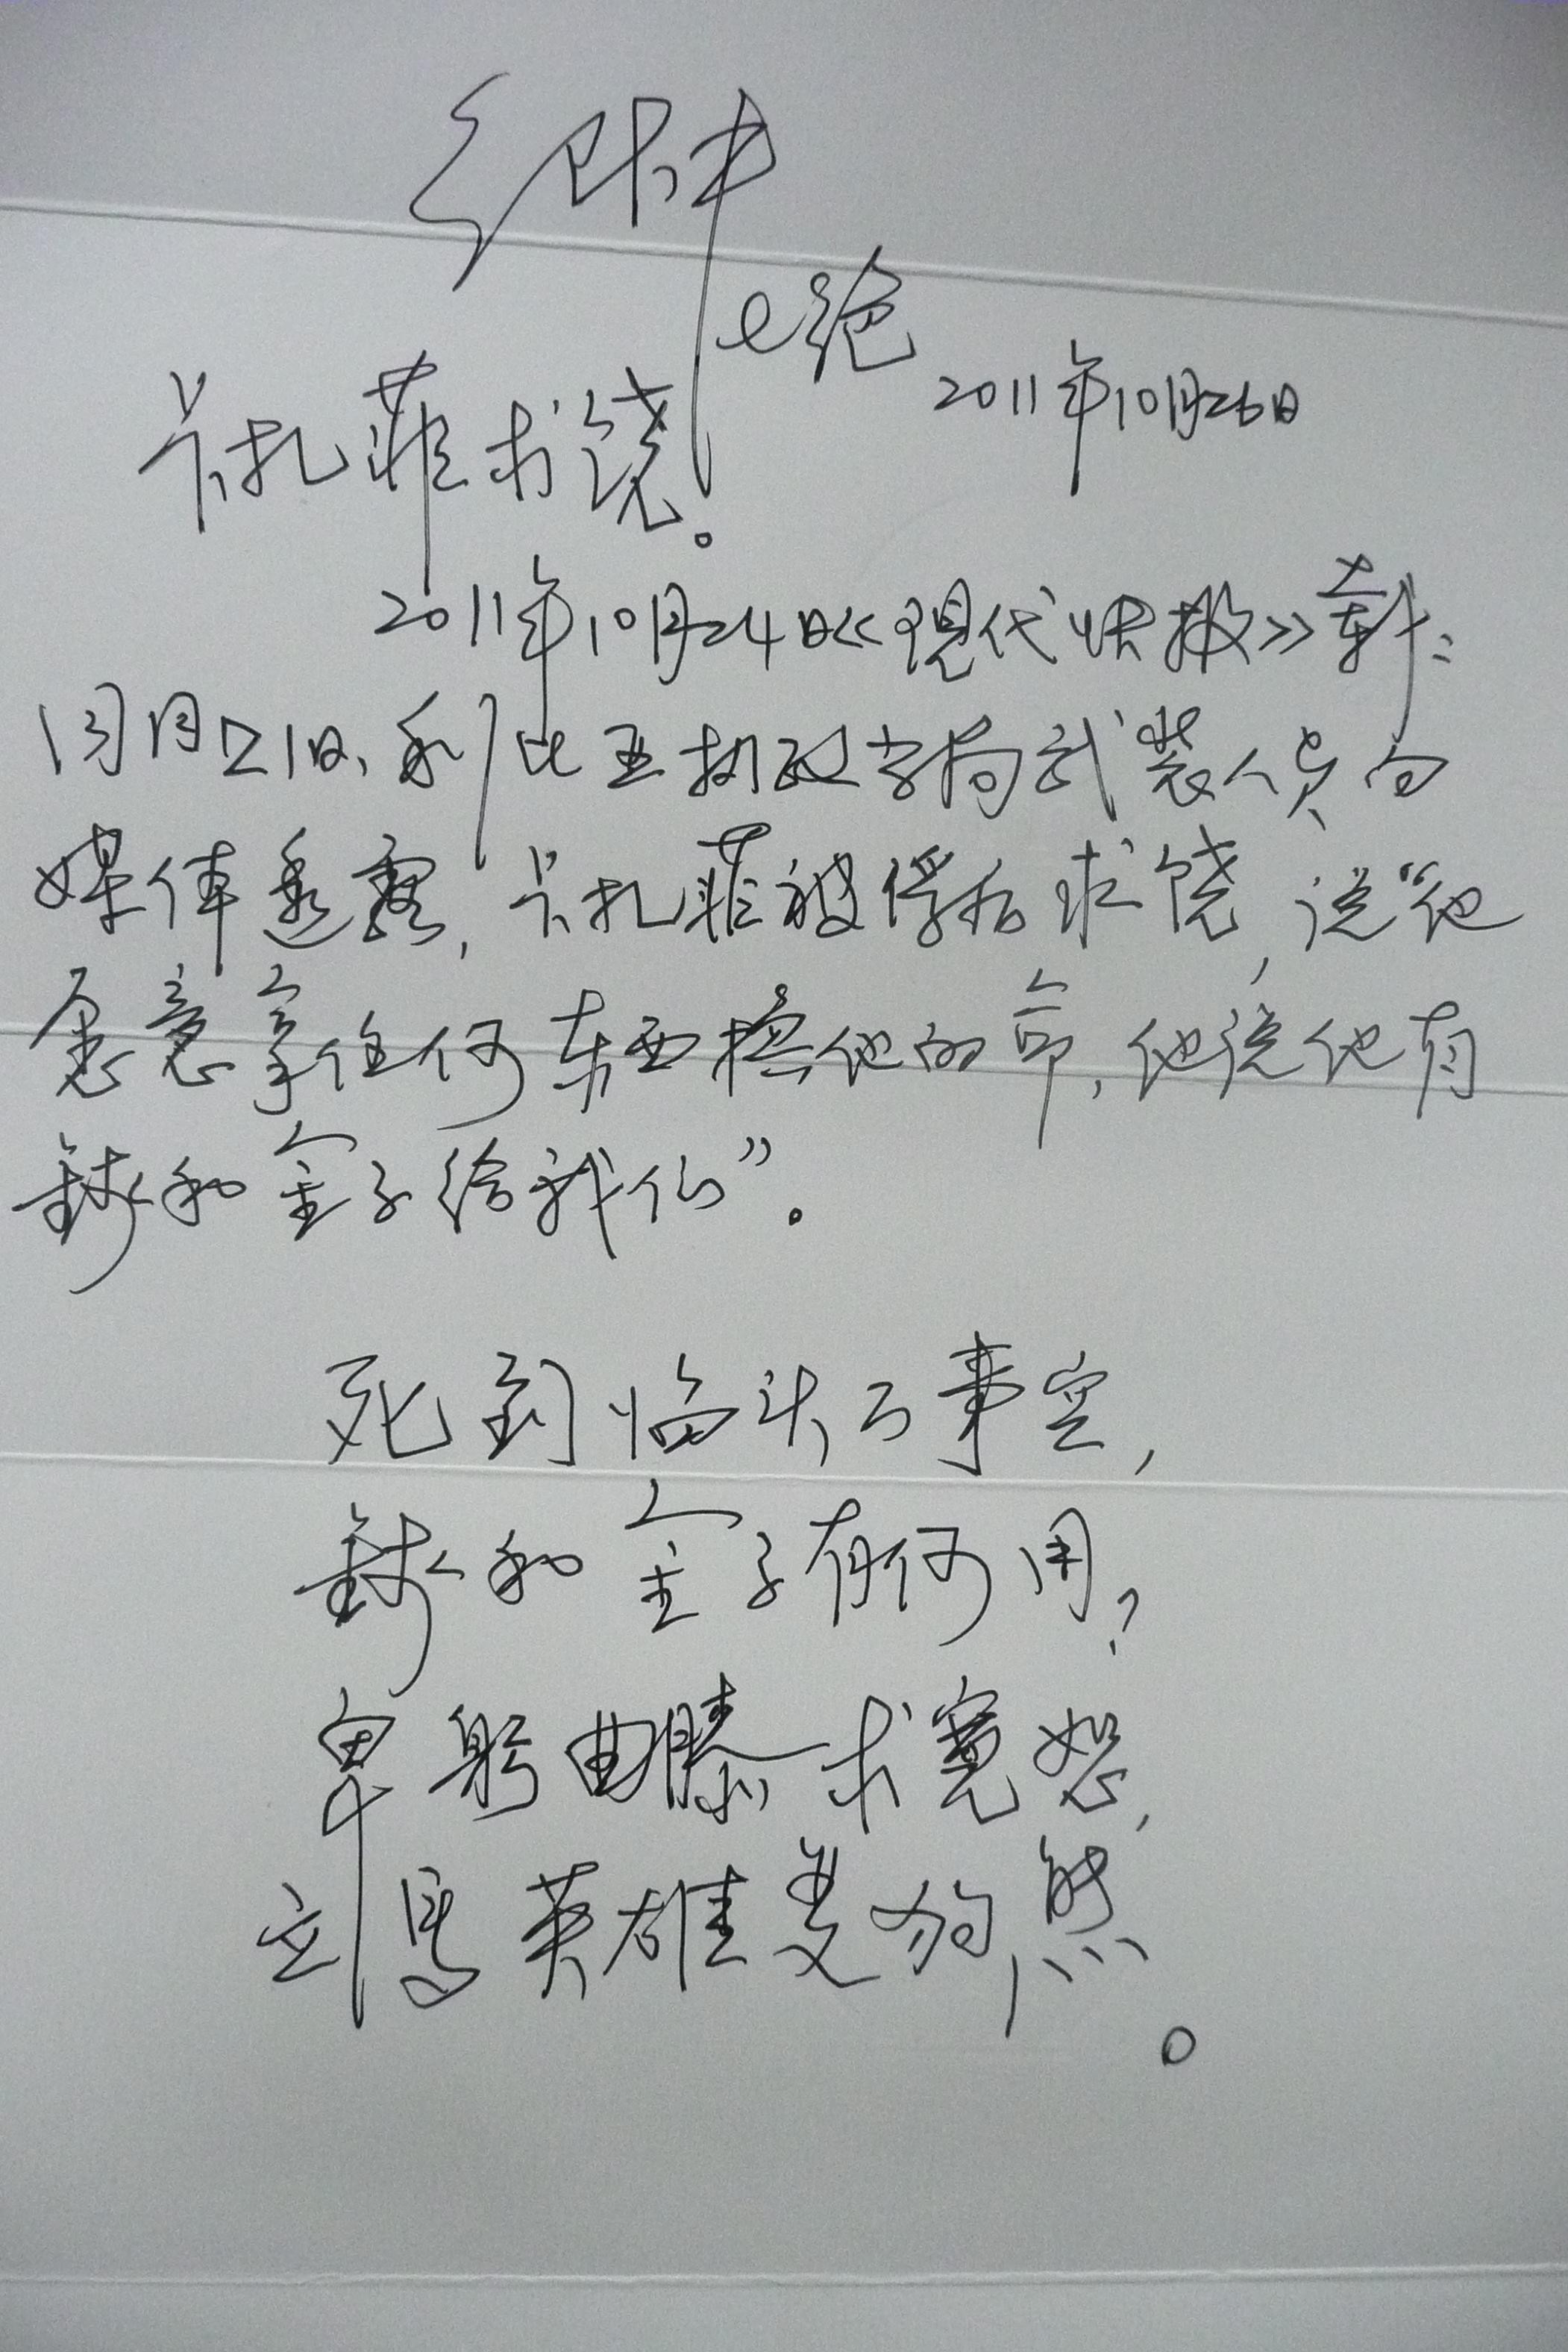 七绝
2011年10月26日
卡扎菲求饶。
2011年10月24日《现代快报》载:
同月21日、利比亚执政当局武装人员向
媒体透露,卡扎菲被俘后求饶,说“他
愿意拿任何东西换他的命,他说他有
钱和金子给我们”。
死到临头万事空,
钱和金子有何用?
卑躬曲膝求宽恕,
立马英雄变狗熊。